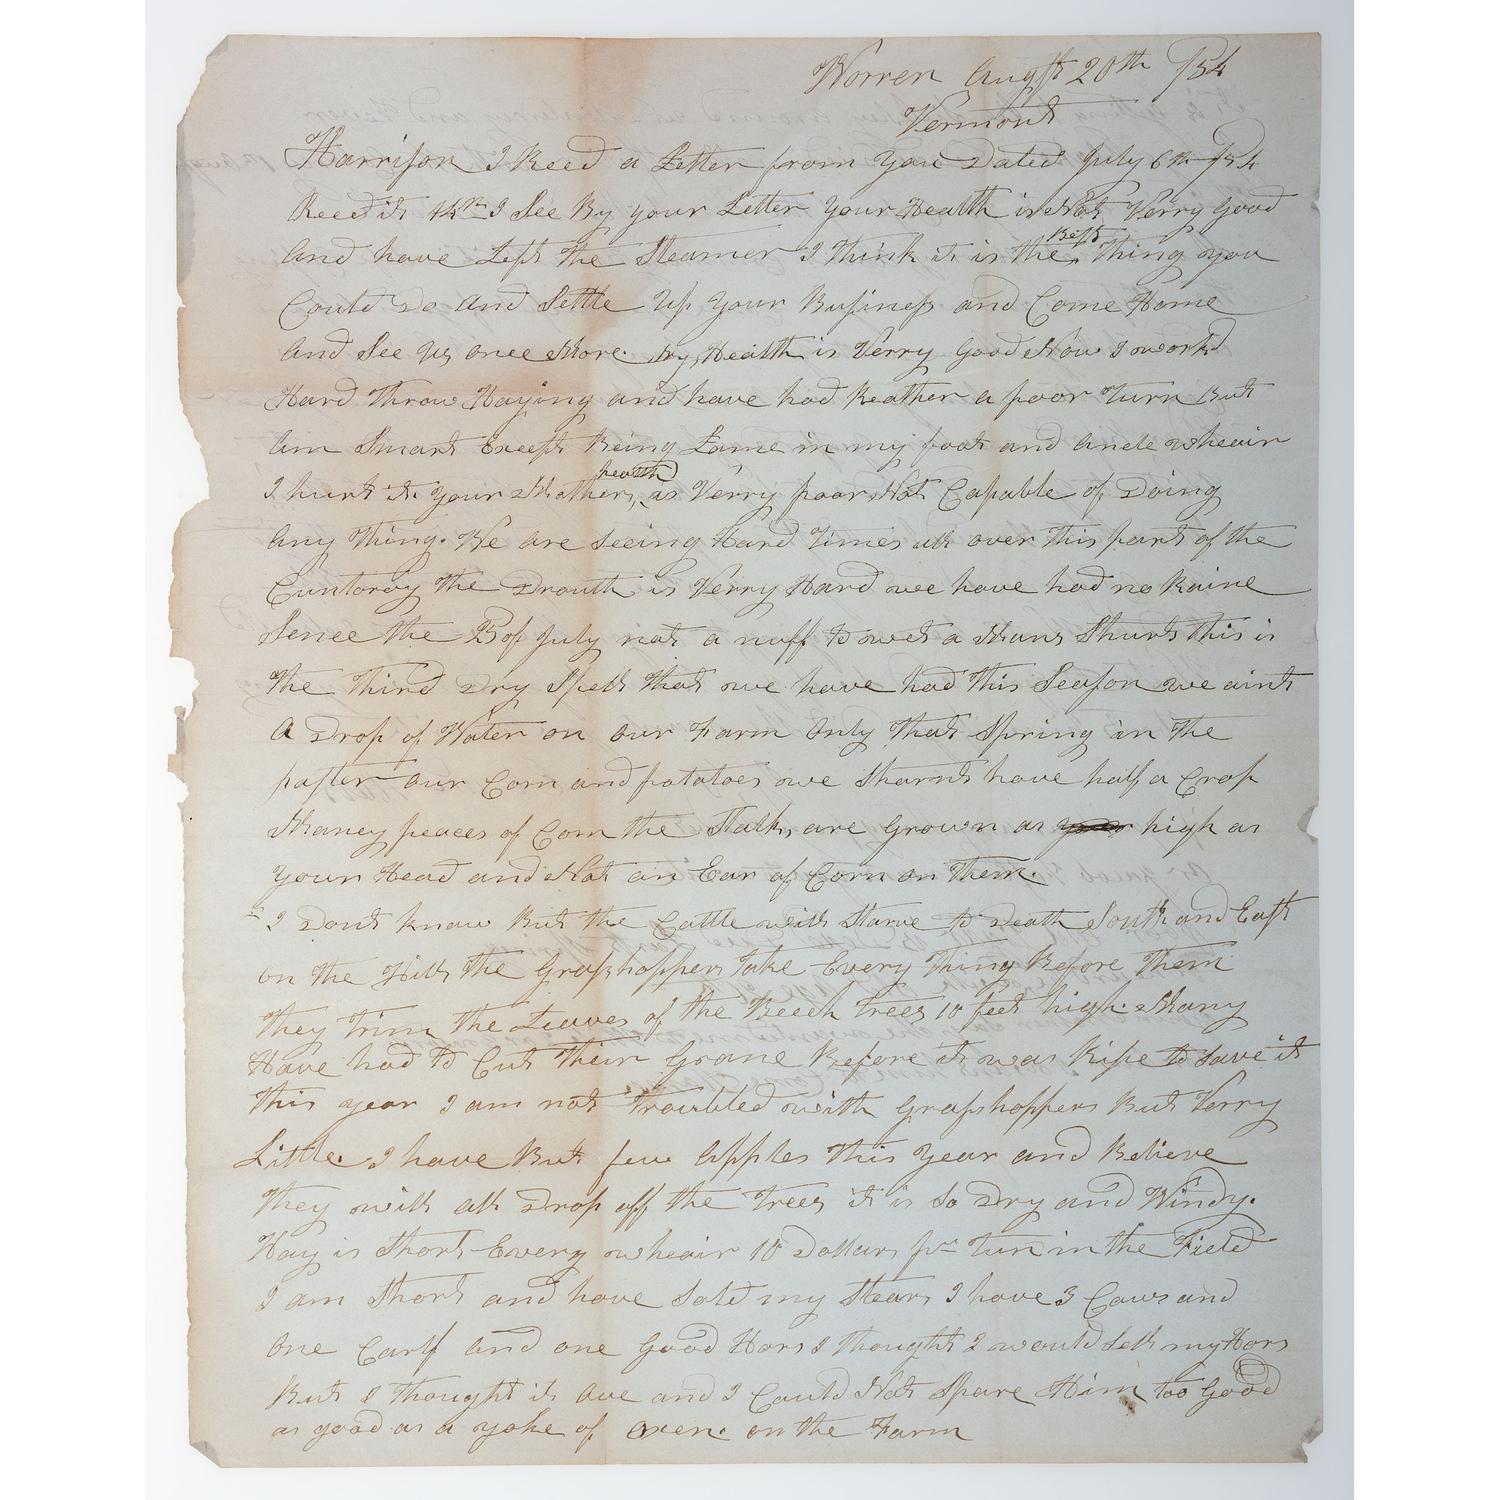 Worren Augst 20th /54
Vermont
Harrison I Recd a Letter from you Dated July 6th /54
Recd it 14th I See By your Letter your Health is Not Verry good
And have Left the Steamer I Think it is the Best Thing you
Could Do And Settle Up your Business and Come Home
And See Us once More. My Health is Verry Good Now I workd
Hard Throw Haying and have had Reather a poor Turn But
Am Smart Except Being Lame in my foot and Ancle wheair
I hurt it. Your Mothers health is Verry poor Not Capable of Doing
Any Thing. We are Seeing Hard Times all over This part of the
Cuntorey The Drouth is Verry Hard we have had no Raine
Sence the 15 of July not a nuff to wet a Mans Shurt this is
The Third Dry Spell That we have had This Season we aint
A Drop of Water on our Farm Only That Spring in The
paster our Corn and potatoes we Sharnt have half a Crop
Maney peaces of Corn the Stalks are Grown as high as
your Head and Not an Ear of Corn on Them.
I Dont know But the Cattle will Starve to Death South and East
on the Hills The Grasshoppers Take Every Thing Before Them
They Trim the Leaves of the Beech Trees 10 feet high. Many
Have had to Cut Their Grane Before it was Ripe to Save it
This year I am not Troubled with Grasshoppers But Verry
Little. I have But few Apples This Year and Believe
They will all Drop off the Trees it is So Dry and Windy.
Hay is Short Every wheair 10 Dollars pr Tun in the Field
I am Short and have Sold my Stears I have 3 Cows and
One Carlf and one Good Hors I Thought I would Sell my Hors
But I Thought it Ove and I Could Not Spare Him too Good
as good as a yoke of Oxen. on the Farm